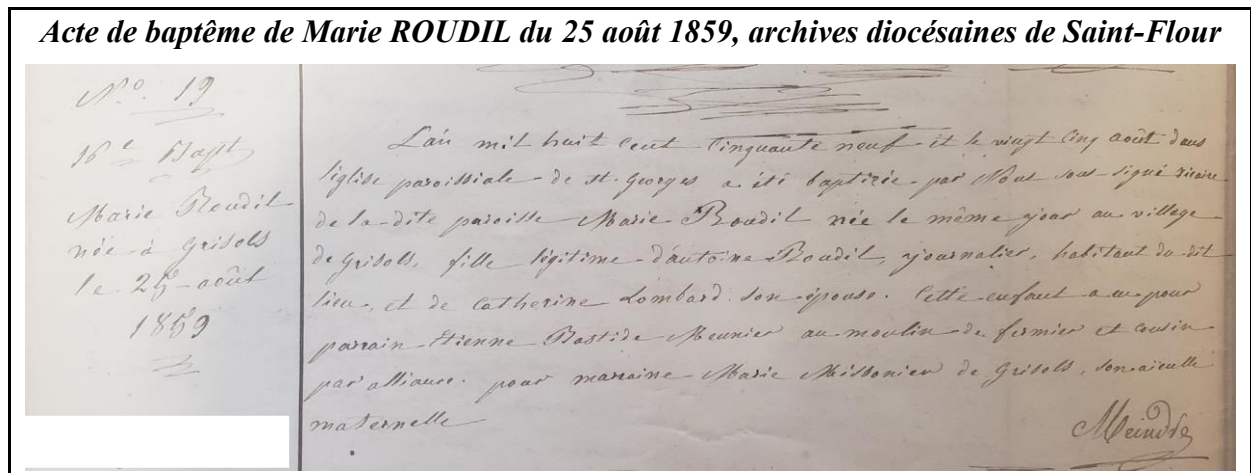 Acte de baptême de Marie ROUDIL du 25 août 1859, archives diocésaines de Saint-Flour
N.º 19
16e Bapt
Marie Roudil
née à Grisols
le 25 août
1859
L'an mil huit cent cinquante neuf et le vingt cinq août dans
l'église paroissiale de st. Georges a été baptisée par Nous sous-signé vicaire
de la-dite paroisse Marie Roudil née le même jour au village
de Grisols, fille légitime d'antoine Roudil, journalier, habitant du-dit
lieu, et de Catherine Lombard son épouse. Cette enfant a eu pour
parrain Etienne Bastide Meunier au moulin de fermier et cousin
par alliance. pour marraine Marie Missonier de Grisols, son aïeulle
maternelle